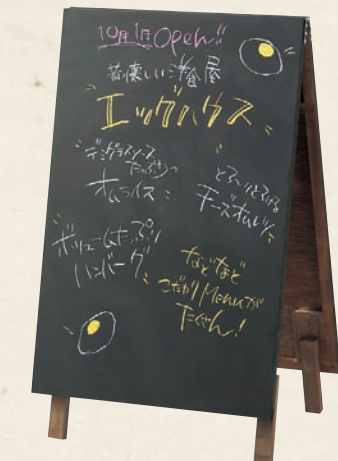 10月1日Open!!
昔懐しい洋食屋
エッグハウス
デミグラスソース
たっぷりの
オムライス
とろ〜りとろける
チーズオムレツ
ボリュームたっぷり
ハンバーグ
などなど
こだわりMenuが
たくさん!